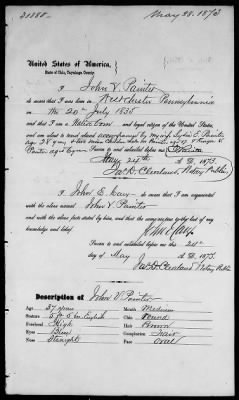 31885
May 28. 1873
United States of America,
State of Ohio, Cuyahoga County.
I John V. Painter
do swear that I was born in West Chester Pennsylvania
on the 20th July 1835
and I am a Native Born and legal citizen of the United States,
and am about to travel abroad accompanied by my wife Lydia E. Painter
age 28 years & two minor children
Painter aged 2 years Sworn to and subscribed before me this
May 24th A. D. 1873.
Jas. D. Cleveland Notary Public
I John E. Cary do swear that I am acquainted
with the above named John V. Painter
and with the above facts stated by him, and that the same are true to the best of my
knowledge and belief.
John E Cary
Sworn to and subscribed before me this 24th
day of May A. D. 1873.
Jas. D. Cleveland Notary Public
Description of John V Painter
Age 37 years
Stature 5 ft 5 in English
Forehead High
Eyes Blue
Nose Straight
Mouth Medium
Chin Round
Hair Brown
Complexion Fair
Face Oval